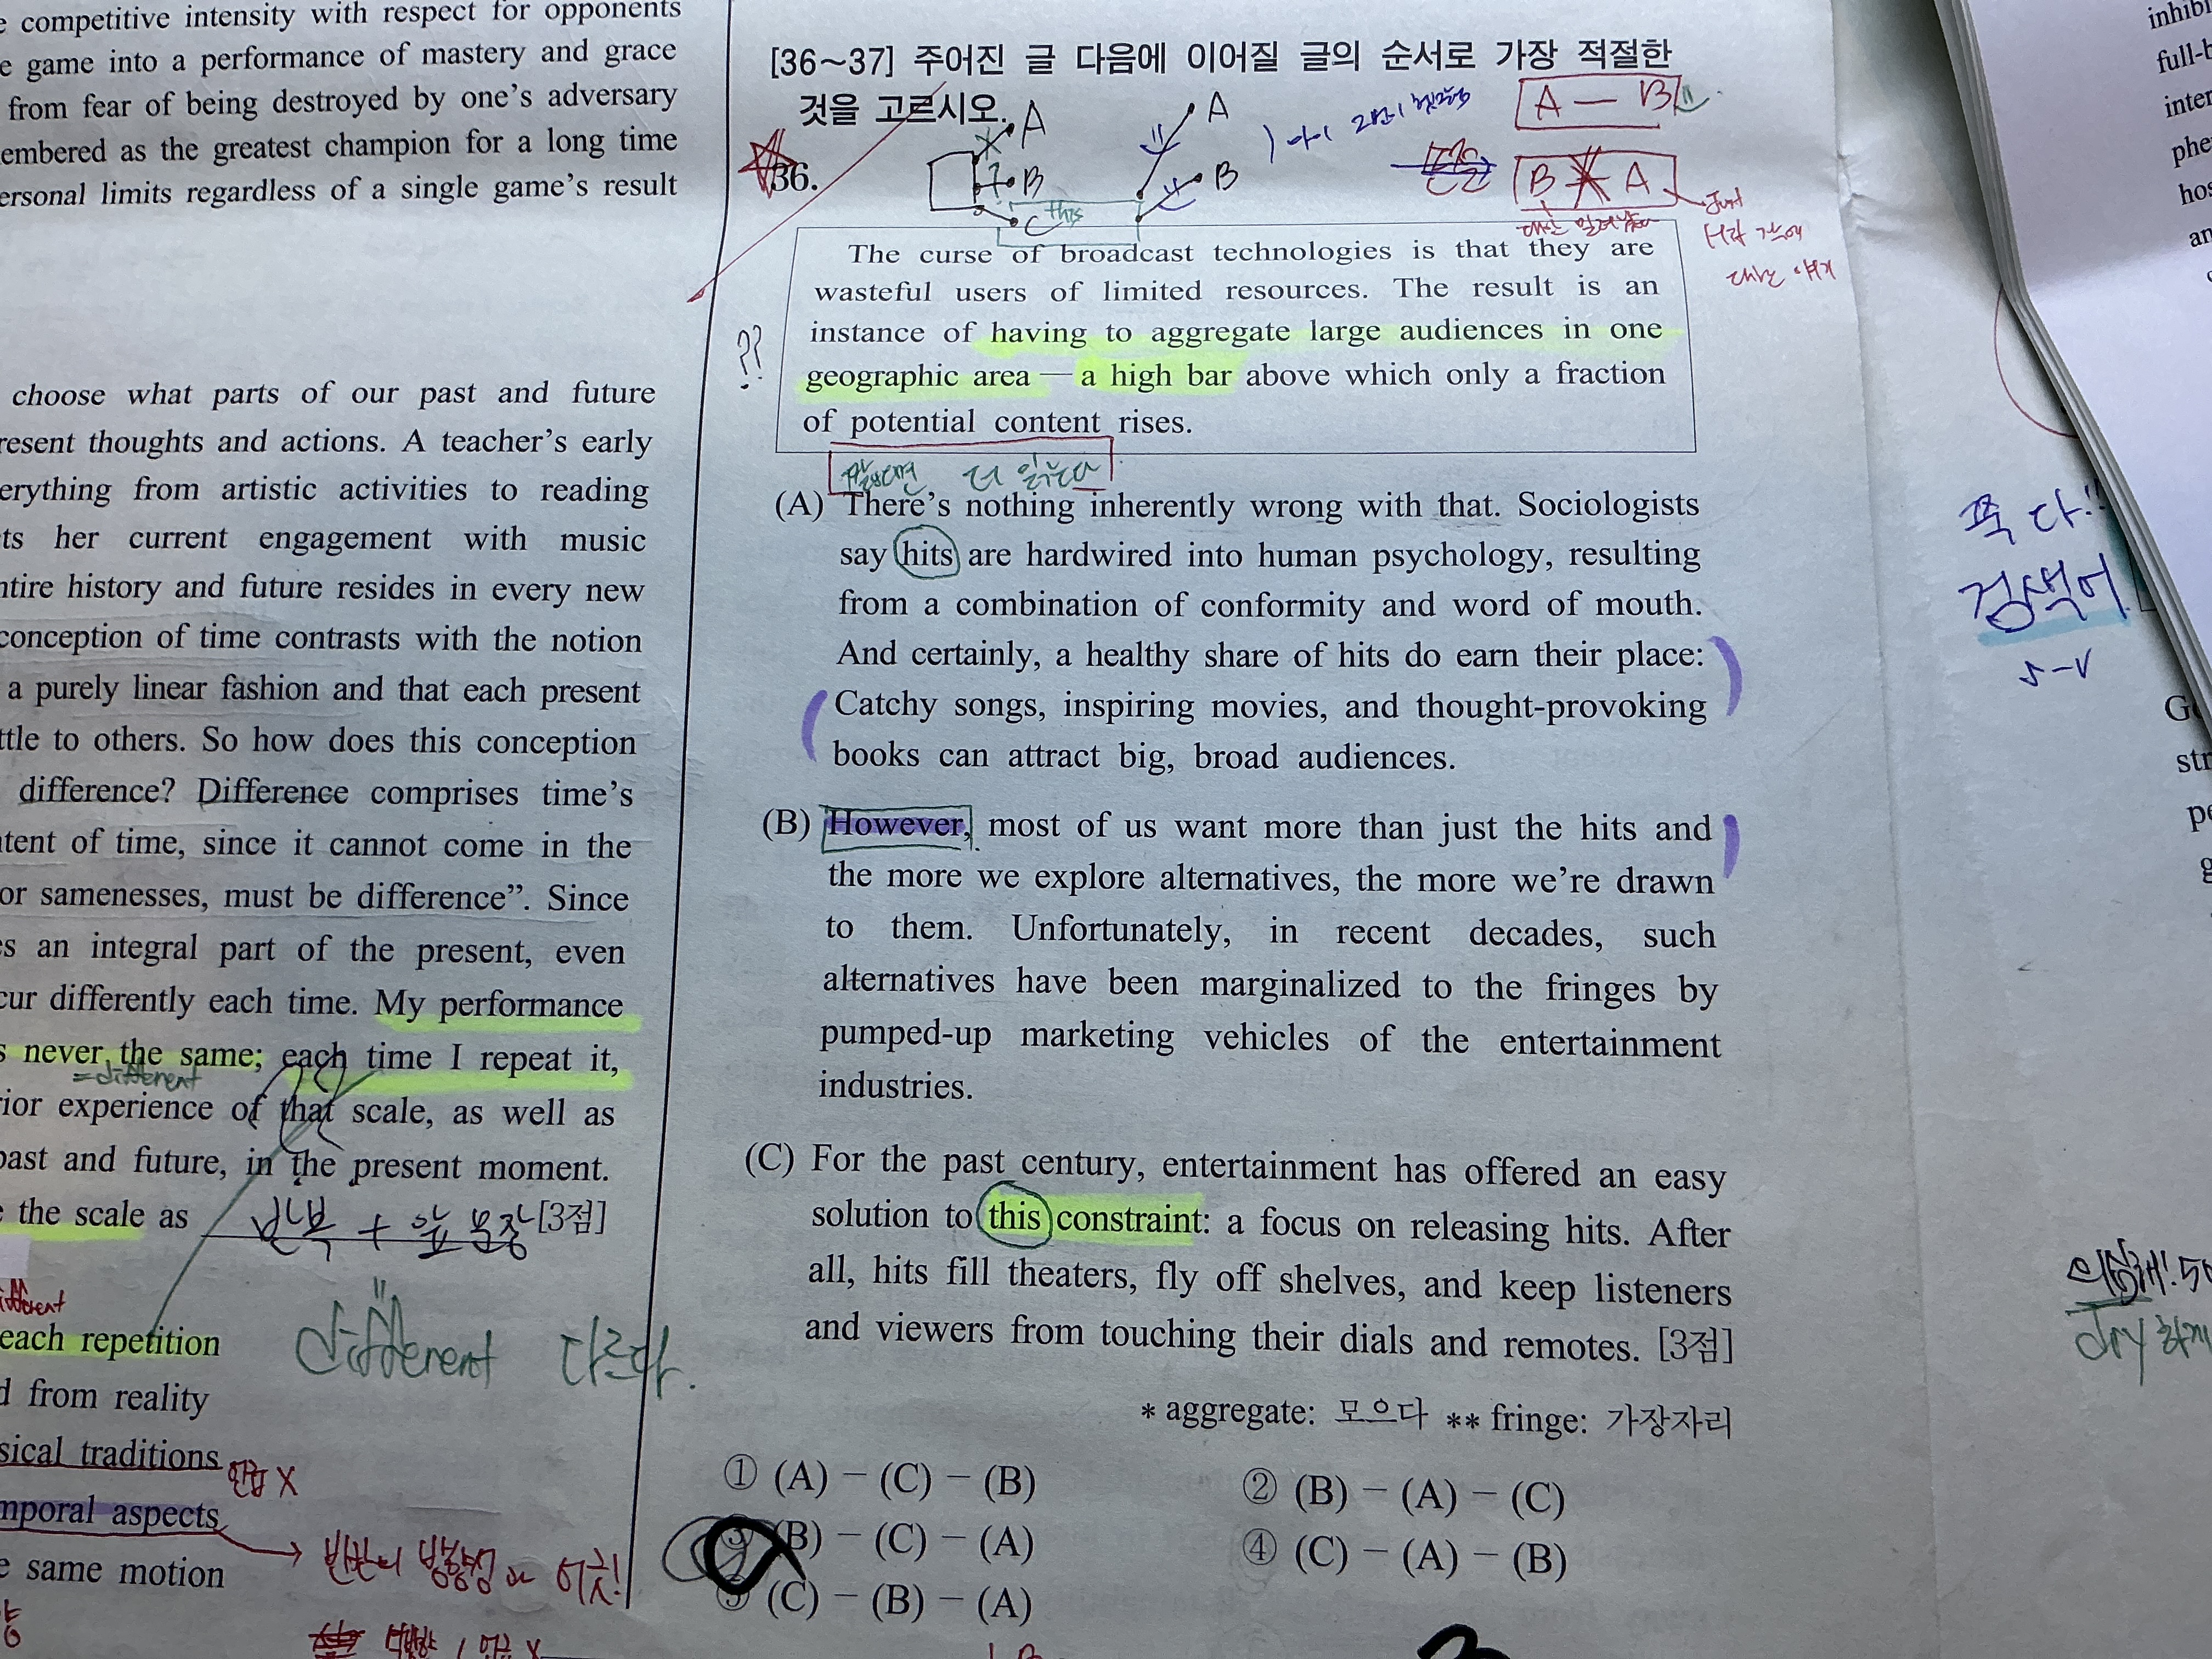 competitive intensity with respect for opponents
game into a performance of mastery and grace
from fear of being destroyed by one's adversary
embered as the greatest champion for a long time
ersonal limits regardless of a single game's result
choose what parts of our past and future
resent thoughts and actions. A teacher's early
erything from artistic activities to reading
ts her current engagement with music
ntire history and future resides in every new
conception of time contrasts with the notion
a purely linear fashion and that each present
ttle to others. So how does this conception
difference? Difference comprises time's
ntent of time, since it cannot come in the
or samenesses, must be difference”. Since
es an integral part of the present, even
cur differently each time. My performance
s never the same; each time I repeat it,
=different
rior experience of that scale, as well as
past and future, in the present moment.
e the scale as
[3점]
different
each repetition
different 다르다.
d from reality
sical traditions
X
mporal aspects
e same motion
[36~37] 주어진 글 다음에 이어질 글의 순서로 가장 적절한
것을 고르시오.
A
B
C
this
A
B
A — B
B A
Just
36.
The curse of broadcast technologies is that they are
wasteful users of limited resources. The result is an
instance of having to aggregate large audiences in one
geographic area — a high bar above which only a fraction
of potential content rises.
??
(A) There's nothing inherently wrong with that. Sociologists
say hits are hardwired into human psychology, resulting
from a combination of conformity and word of mouth.
And certainly, a healthy share of hits do earn their place:
Catchy songs, inspiring movies, and thought-provoking
books can attract big, broad audiences.
(B) However, most of us want more than just the hits and
the more we explore alternatives, the more we're drawn
to them. Unfortunately, in recent decades, such
alternatives have been marginalized to the fringes by
pumped-up marketing vehicles of the entertainment
industries.
(C) For the past century, entertainment has offered an easy
solution to this constraint: a focus on releasing hits. After
all, hits fill theaters, fly off shelves, and keep listeners
and viewers from touching their dials and remotes. [3점]
* aggregate: 모으다 ** fringe: 가장자리
① (A) − (C) − (B)
② (B) − (A) − (C)
③ (B) − (C) − (A)
④ (C) − (A) − (B)
⑤ (C) − (B) − (A)
쭉 다!!
검색어
dry
inhibi
full-b
inter
phe
hos
an
str